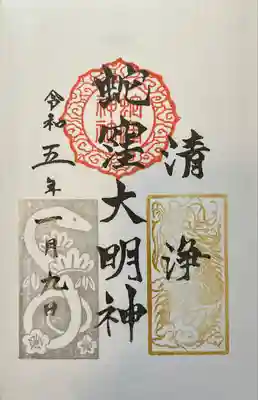 清浄
蛇窪大明神
令和五年
一月九日